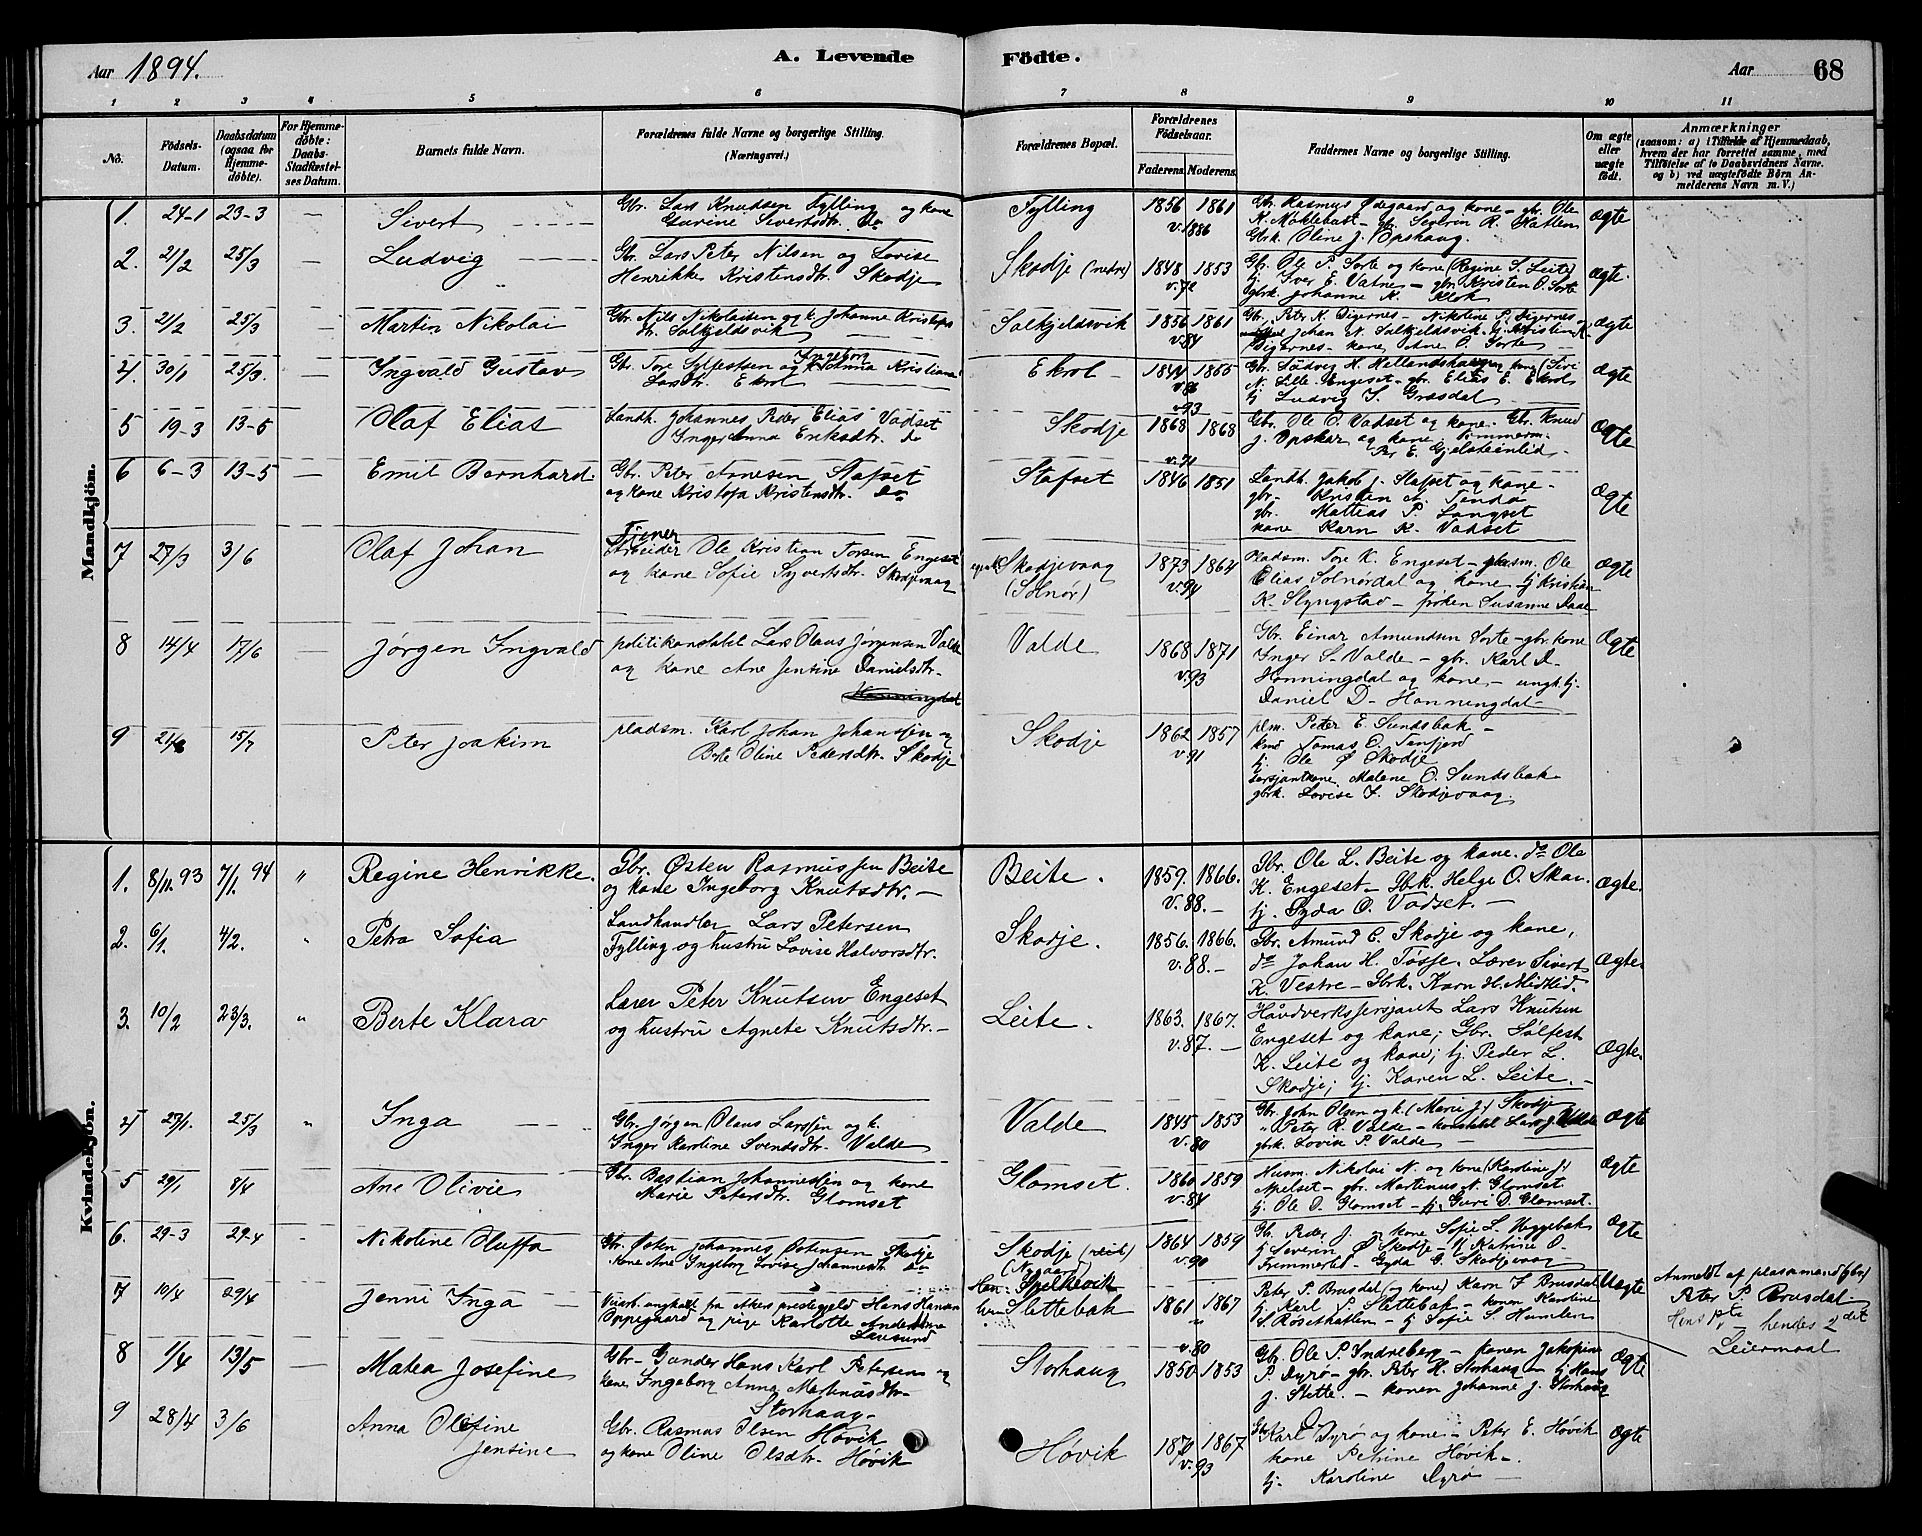 Aar 1894.
A. Levende Födte.
Aar 68
1 2 3 4 5 6 7 8 9 10 11
No.
Födsels-Datum.
Daabsdatum (ogsaa for Hjemme-döbte).
For Hjemme-döbte: Daabs-Stadfæstel-ses Datum.
Barnets fulde Navn.
Forældrenes fulde Navne og borgerlige Stilling. (Næringsvei.)
Forældrenes Bopæl.
Forældrenes Födselsaar. Faderens. Moderens.
Faddernes Navne og borgerlige Stilling.
Om ægte eller uægte født.
Anmærkninger
(saasom: a) i Tilfælde af Hjemmedaab,
hvem der har forrettet samme, med
Tilføielse af to Daabsvidners Navne.
og b) ved uægtefødte Børn An-
melderens Navn m. V.)
Mandkjön.
1. 24-1 23-3 — Sivert
Gbr. Lars Knudsen Fylling og kone
Gurine Sivertsdtr. do
Fylling 1856 1861 v. 1886
Gbr. Rasmus Ødegaard og kone - gbr. Ole
K. Møklebust - gbr. Severin R. Hatlen
Gbrk. Oline J. Opshaug.
Ægte
2. 2/2 25/3 — Ludvig
Gbr. Lars Peter Nilsen og Lovise
Henrikke Kristensdtr. Skodje
Skodje (nedre) 1848 1853 v. 72
Gbr. Ole P. Sorte og kone (Regine S. Leite)
tj. Iver E. Vatne - gbr. Kristen O. Sorte
gbrk. Johanne K. Klok
Ægte.
3. 2/2 25/3 — Martin Nikolai
Gbr. Nils Nikolaisen og k. Johanne Kristofs
dtr. Solkjeldsvik
Solkjeldsvik 1856 1861 v. 84
Gbr. Peter K. Digernes - Nikoline P. Digernes -
Johan N. Solkjeldsvik - tj. Kristian K.
Digernes - kone Ane O. Sorte
Ægte
4. 30/1 25/3. — Ingvald Gustav
Gbr. Tore Sylfestsen og k. Ingeborg Anna Kristiane
Larsdtr. Ekrol
Ekrol - 1844 1855 v. 86
Gbr. Ludvig H. Hellandshaugen kone (Siri
N. Lille Engeset - gbr. Elias E. Ekrol
tj Ludvig S. Græsdal
Ægte
5 19-3 13-5 — Olaf Elias
Landh. Johannes Peder Elias Vadset
Inger Anna Eriksdtr. do
Skodje v. 93 1868 1868
Gbr. Ole O. Vadset og kone. Gbr. Knud
J. Opskar og kone. Tømmerm.
Per E. Gjelsteinlid -
Ægte
6 6-3 13-5 — Emil Bernhard.
Gbr. Peter Arnesen Stafset
og kone Kristofa Kristensdtr. do
Stafset v. 71 1846 1851
Landh. Jakob J. Stafset og kone -
gbr. Kristen A. Tenda
gbr. Mattias P. Langset
kone Karn K. Vadset
Ægte
7 27/3 3/6 Olaf Johan
Tjener
Arbeider Ole Kristian Torsen Engeset
og kone Sofie Syvertsdtr. Skodjevaag
Skodjevaag (Solnør) 1873 1864 v. 94
Pladsm. Tore K. Engeset - plasm. Ole
Elias Solnørdal og kone tj Kristian
K. Slyngstad - frøken Susanne Daae
Ægte
8 14/4 17/6 — Jørgen Ingvald
politikonstabel Lars Olaus Jørgensen Valde
og kone Ane Jentine Danielsdtr.
Valde 1868 1871 v. 93
Gbr. Einar Amundsen Sorte - gbr. kone
Inger S. Valde - gbr. Karl D.
Honningdal og kone - ungk. tj.
Daniel D. Honningdal -
Ægte
9 15/7 Peter Joakim
pladsm. Karl Johan Johansen og
Berte Oline Pedersdtr. Skodje
Skodje 1862 1857 v. 91
plm. Peter E. Sundsbak -
Tomas O. Tenfjord
tj. Ole Ø Skodje
sersjantkone Malene O. Sundsbak
gbrk. Lovise I. Skodjevaag.
Kvindekjön.
1. 8/11. 93 7/1. 94 " Regine Henrikke.
Gbr. Østen Rasmussen Beite
og kone Ingeborg Knutsdtr. -
Beite. 1859. 1866. v. 88. -
Gbr. Ole L. Beite og kone. do Ole
K. Engeset - Gbrk. Helge O. Skar.
tj. Gyda O. Vadset. -
Ægte.
2. 6/1. 4/2. " Petra Sofia
Landhandler Lars Petersen
Fylling og hustru Lovise Halvorsdtr.
Skodje. 1856. 1866. v. 88. -
Gbr. Amund E. Skodje og kone,
do Johan H. Tøsse. Lærer Sivert
K. Vestre - Gbrk. Karn H. Midtlid.
Ægte.
3. 10/2 23/3. " Berte Klara
Lærer Peter Knutsen Engeset
og hustru Agnete Knutsdtr. -
Leite. 1863. 1867. v. 87. -
Haandverkssersjant Lars Knutsen
Engeset og kone; Gbr. Sølfest
K. Leite og kone; tj. Peder L.
Skodje; tj. Karen L. Leite. -
Ægte.
4 27/1. 25/3 " Inga
Gbr. Jørgen Olaus Larssen og k.
Inger Karoline Svendsdtr. Valde
Valde 1845 1853 v. 80
Gbr. John Olsen og k. (Marie J.) Skodje
" Peter R. Valde - konstabel Lars J. Valde
gbrk. Lovise P. Valde -
Ægte
5 29/1 8/4 Ane Olivie
Gbr. Bastian Johannessen og kone
Marie Petersdtr. Glomset
Glomset. 1860 1859 v. 84
Husm. Nikolai N. og kone (Karoline J.)
Apelset - gbr. Martinus N. Glomset
tj. Ole D. Glomset - tj. Guri D. Glomset.
Ægte
6. 29-3 29-4 - Nikoline Oluffa
Gbr. Østen Johannes Østensen Skodje
kone Ane Ingeborg Lovise Johannesdtr do
Skodje (Nygaard) 1864 1859 v. 90
Gbr. Peder J. og kone Sofie L. Heggebak
tj Severin Ø. Skodje - tj Katrine O.
Fremmerlid - Gyda G. Skodjevaag
Ægte
7 10/4 29/4 Jenni Inga
Veiarb. ungkarl fra Akers prestegjeld Hans Hansen
Oppegaard og pige Karlotte Andersdtr
Han: Spilkevik
hun Slettebak 1861 1867
Peter P. Brusdal (og kone) Karn I. Brusdal
tj. Karl P. Slettebak - konen Karoline
S. Røsethatlen - tj Sofie S. Humlen
Uægte
Anmeldt af pladsmand (gbr)
Peter P. Brusdal.
Hans 1ste - hendes 2det
Leiermaal
8 1/4 13/5 — Matea Josefine
Gbr. Gunder Hans Karl Petersen og
kone Ingeborg Anna Martinusdtr.
Storhaug -
Storhaug v. 80 1850 1853
Gbr. Ole P. Indreberg - konen Jakopine
P. Dyrø - gbr. Peter H. Storhaug - tj Hans
J. Slette. - konen Johanne J. Storhaug
Ægte
9 28/4 3/6 Anna Olefine
Jensine
Gbr. Rasmus Olsen Høvik
og kone Oline Olsdtr. Høvik
Høvik 1870 1867 v. 93
Gbr Karl Dyrø og kone - Peter E. Høvik
kone Petrine Høvik -
tj. Karoline Dyrø -
Ægte